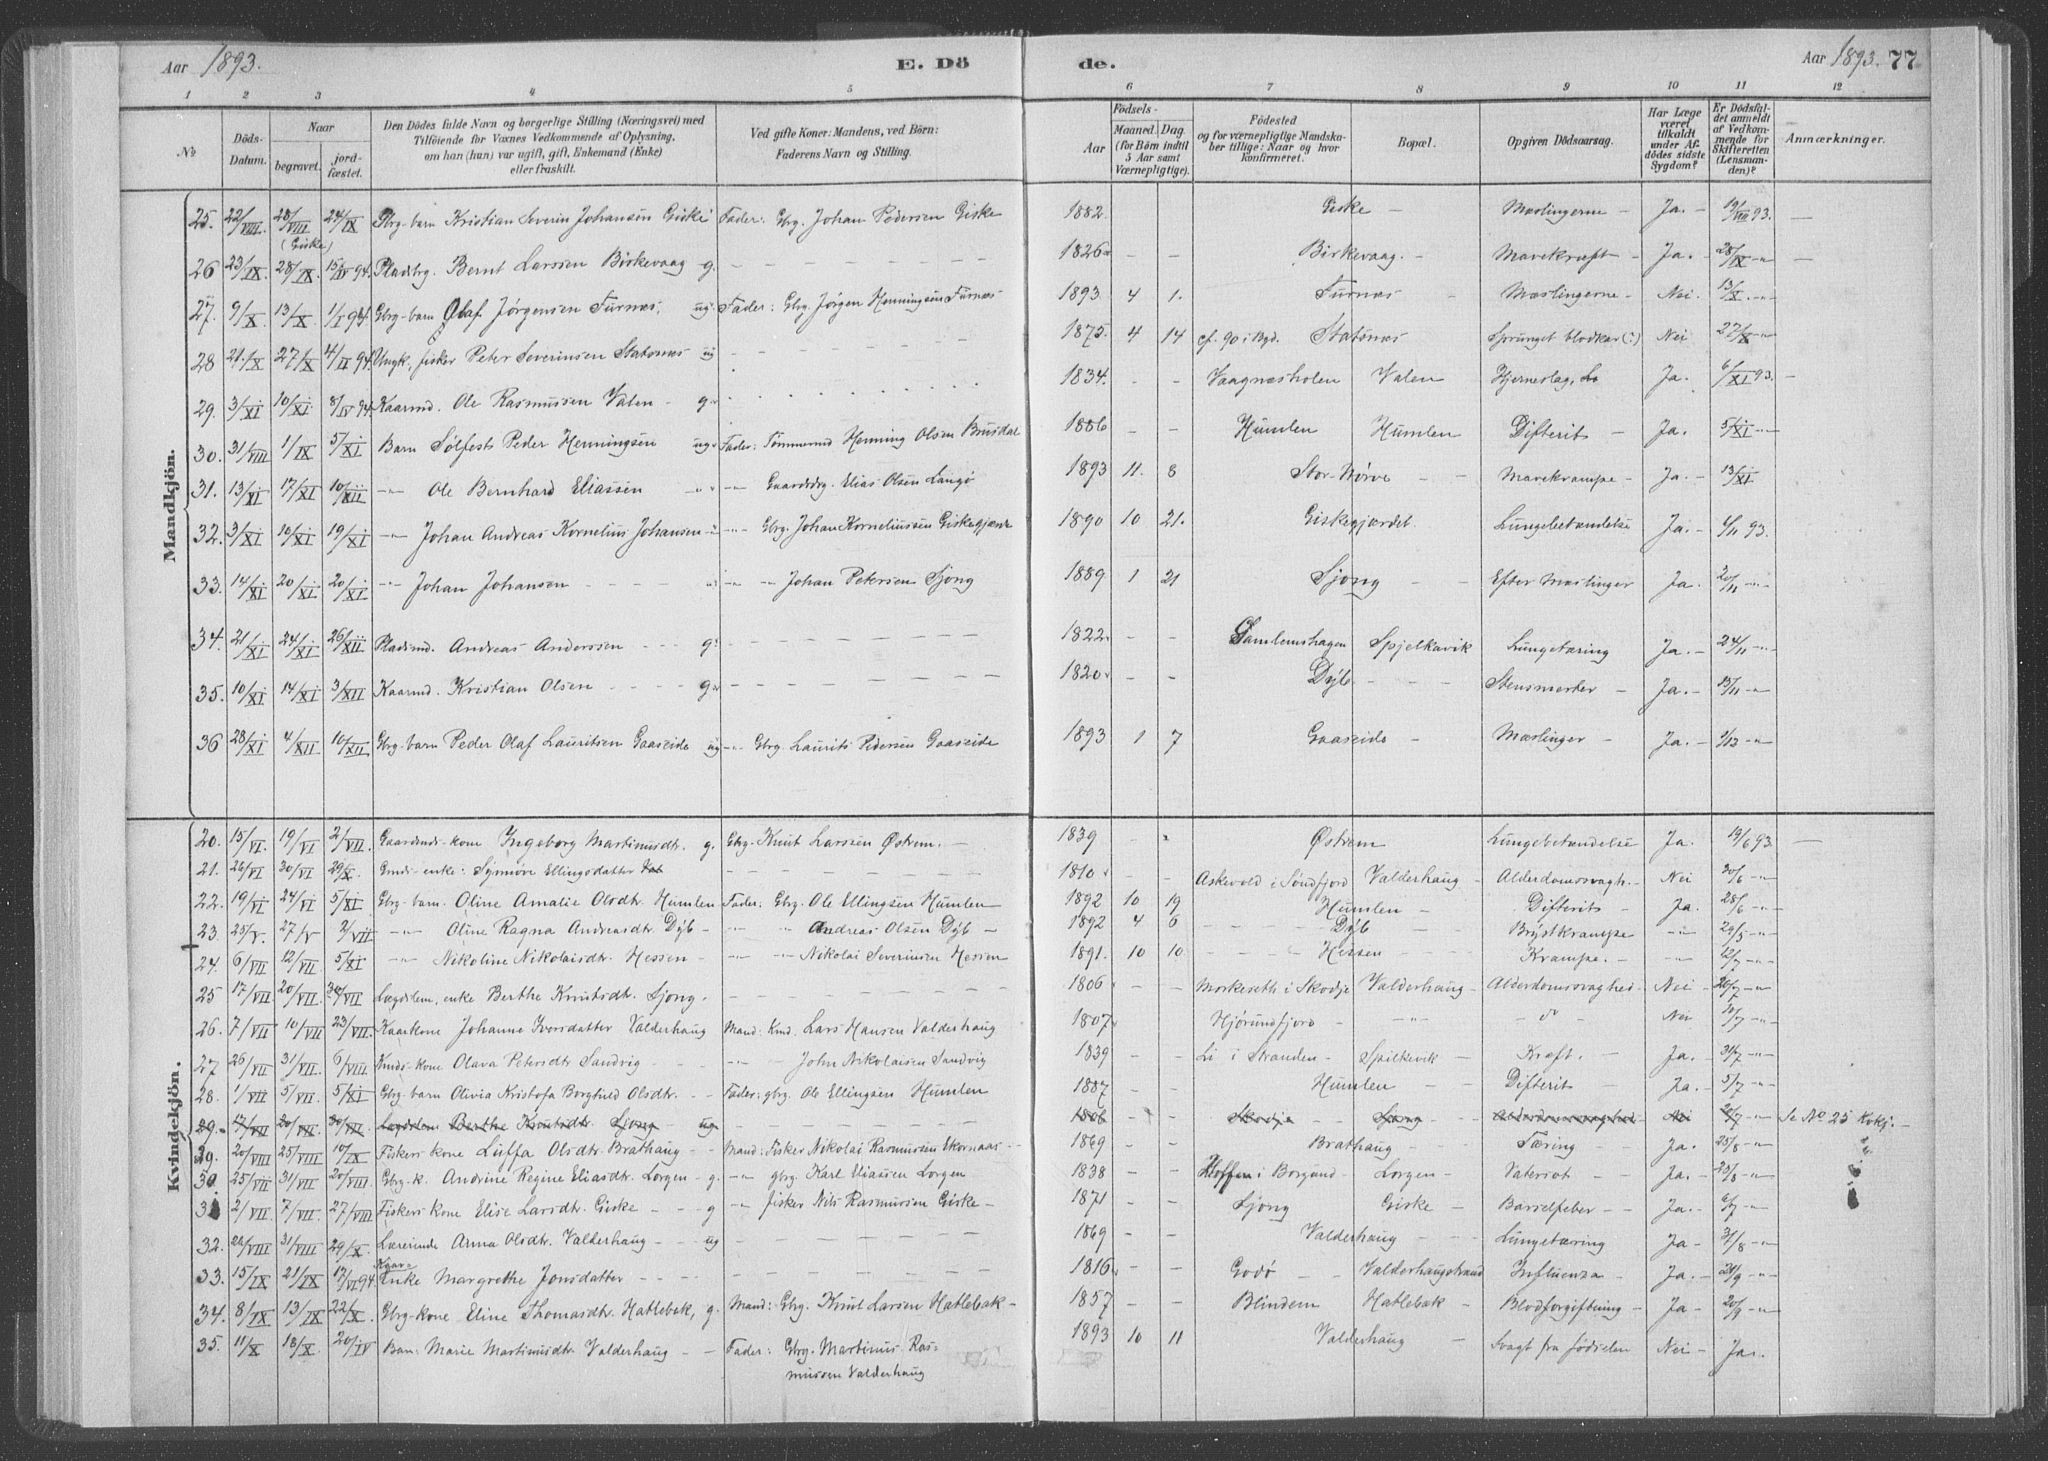 Aar 1893. E. Dö de. Aar 1893. 77
1 2 3 4 5 6 7 8 9 10 11 12
№ Döds-Datum. Naar begravet. jord-fæstet. Den Dödes fulde Navn og borgerlige Stilling (Næringsvei) med Tilföiende for Voxnes Vedkommende af Oplysning, om han (hun) var ugift, gift, Enkemand (Enke) eller fraskilt. Ved gifte Koner: Mandens, ved Börn: Faderens Navn og Stilling. Födsels- Aar Maaned. Dag. (for Børn indtil 5 Aar samt Værnepligtige). Födested og for værnepligtige Mandskaber tillige: Naar og hvor konfirmeret. Bopæl. Opgiven Dödsaarsag. Har Læge været tilkaldt under Afdödes sidste Sygdom? Er Dödsfaldet anmeldt af Vedkommende for Skifteretten (Lensmanden)? Anmærkninger.
Mandkjön.
25. 22/VIII. 28/VIII (Giske) 24/IX Gbrg-barn Kristian Severin Johansen Giske Fader: Gbrg. Johan Pedersen Giske 1882. Giske – Mæslingerne – Ja. – 19/VIII 93. –
26 23/IX 28/IX 15/IV 94. Pladsbrg. Bernt Larssen Birkevaag g. – 1826 – – Birkevaag. – Mavekræft – Ja. – 28/IX –"– –
27. 9/X 13/X 1/I 94. Gbrg-barn Olaf Jørgensen Furnæs, ug. Fader: Gbrg. Jørgen Henningsen Furnæs 1893. 4 1. Furnæs – Mæslingerne – Nei 13/X –"–
28 21/X 27/X 4/II 94. Ungk. fisker Peter Severinsen Statsnæs ug – 1875. 4 14 cf. 90 i Bgd. Statsnæs Sprunget blodkar (?) Nei 27/X –"–
29. 3/XI 10/XI. 8/IV 94. Kaarmd. Ole Rasmussen Valen – g. 1834. – – Vaagnæsholen Valen Hjerneslag, Ja. 6/XI 93. –
30. 31/VIII 1/IX 5/XI Barn Sølfest Peder Henningsen ug. Fader: Tømmermd Henning Olsen Brusdal 1886 – – Humlen Humlen Difterit – Ja. 5/XI –"–
31. 13/XI 17/XI 10/XII –"– Ole Bernhard Eliassen –"– Gaardsbrg. Elias Olsen Langø 1893 11. 8 Stor-Nørve – – Mavekrampe – Ja – 13/XI
32. 3/XI 10/XI 19/XI –"– Johan Andreas Kornelius Johansen –"– Gbrg. Johan Korneliussen Giskegjærde 1890 10 21. Giskegjærdet. Lungebetændelse Ja. – 4/11 93.
33. 14/XI 20/XI 20/XI –"– Johan Johansen –"– Johan Petersen Sjong 1889 1 21 Sjong – – Efter Mæslinger Ja. 20/11 –"–
34. 21/XI 24/XI 26/XII Pladsmd. Andreas Anderssen – – g. – 1822. – – Gamlemshagen Spjelkavik Lungetæring Ja. – 24/11 –"–
35. 10/XI 14/XI 3/XII Kaarmd. Kristian Olsen – – g. – 1820. – Dyb – – – Stensmerter – Ja. – 13/11 –"–
36 28/XI 4/XII 10/XII Gbrg-barn Peder Olaf Lauritsen Gaaseide ug –"– Gbrg. Laurits Pedersen Gaaseide 1893 1 7 Gaaseide – Mæslinger – Ja. – 9/12 –"–
Kvindekjön.
20. 15/VI. 19/VI 2/VII. Gaardmds-kone Ingeborg Martinusdtr. g. Gbrg. Knut Larssen Østrem. – 1839 – – Østrem Lungebetændelse Ja. 19/6 93. –
21. 26/VI 30/VI 29/X. Gmds-enke: Synnøve Ellingsdatter – 1810 – – Askevold i Søndfjord Valderhaug – Alderdomssvagh. – Nei 30/6 –"–
22. 19/VI 24/VI 5/XI Gbrg-barn. Oline Amalie Olsdtr. Humlen Fader: Gbrg. Ole Ellingsen Humlen 1892 10 19 Humlen – Difterit – Ja. 28/6 –"–
23. 25/V. 27/V 2/VII –"– Oline Ragna Andreasdtr. Dyb – –"– Andreas Olsen Dyb – 1892 4 6 Dyb – Brystkrampe –"– 29/5 –"–
24. 6/VII 12/VII 5/XI –"– Nikoline Nikolaisdtr. Hessen – –"– Nikolai Severinsen Hessen 1891. 10 10. Hessen Krampe. – –"– 12/7 –"–
25 17/VII 20/VII 30/VII Lægdslem, enke Berthe Knutsdt. Sjong. – 1806 – – Morkeseth i Skodje Valderhaug – Alderdomssvaghed – Nei – 20/7 –"–
26. 7/VII 10/VII 23/VII. Kaarkone Johanne Iversdatter Valderhaug Mand: Kmd. Lars Hansen Valderhaug 1807. – Hjørundfjord – –"– – d° – Nei 10/7 –"–
27 26/VII 31/VII 6/VIII Kmds-kone Olava Petersdtr Sandvig – –"– John Nikolaisen Sandvig 1839 – – Li i Stranden – Spilkevik – Kræft. – Ja. – 31/7 –"–
28. 1/VII 5/VII 5/XI Gbrg-barn Olivia Kristofa Borghild Olsdtr. – – Fader: gbrg. Ole Ellingsen Humlen 1887 – – Humlen – – Difterit – Ja – 5/7 –"–
29. 17/VII 20/VII 30/VII. Lægdslem Berthe Knutsdtr. Sjong ug 1806 – – Skodje Sjong – Alderdomssvaghed Nei 20/7 –"– Se N° 25 Kvkj. –
29. 20/VIII 25/VIII 10/IX Fiskers kone Luffa Olsdtr. Brathaug – – Mand: Fisker Nikolai Rasmussen Ekornaas – 1869 – – Brathaug – Tæring – Ja. – 25/8 –"–
30. 25/VII 31/VII 20/VIII Gbrg-k. Andrine Regine Eliasdtr. Lorgen – g. –"– gbrg. Karl Eliassen Lorgen 1838 – – i Borgund – Lorgen – Vatersot – Ja. – 23/8 –"–
31 2/VII 7/VII. 27/VIII Fiskers kone Elise Larsdtr. Giske – – g –"– fisker Nils Rasmussen Giske – 1871 – – Sjong Giske – Barselfeber – Ja. – 6/7 –"–
32. 22/VIII 31/VIII 29/X. Lærerinde Anna Olsdtr. Valderhaug – – ug – 1869 – – Valderhaug – Lungetæring Ja – 31/8 –"–
33. 15/IX 21/IX 17/VI 94 Kaare Enke Margrethe Jonsdatter – 1816 – – Godø – – Valderhaugstrand Influenza – Ja. – 21/9 –"–
34. 8/IX 13/IX 22/X. Gbrg-kone Eline Thomasdtr. Hatlebak, g. Mand: Gbrg. Knut Larsen Hatlebak – 1857 – – Blindem Hatlebak – Blodforgiftning – Ja – 20/9 –"–
35. 11/X 18/X. 20/IV Barn: Marie Martinusdtr. Valderhaug – – Fader: Gbrg. Martinus Ras- 1893 10 11 Valderhaug – Svagt fra fødselen Nei – Ja.
mussen Valderhaug